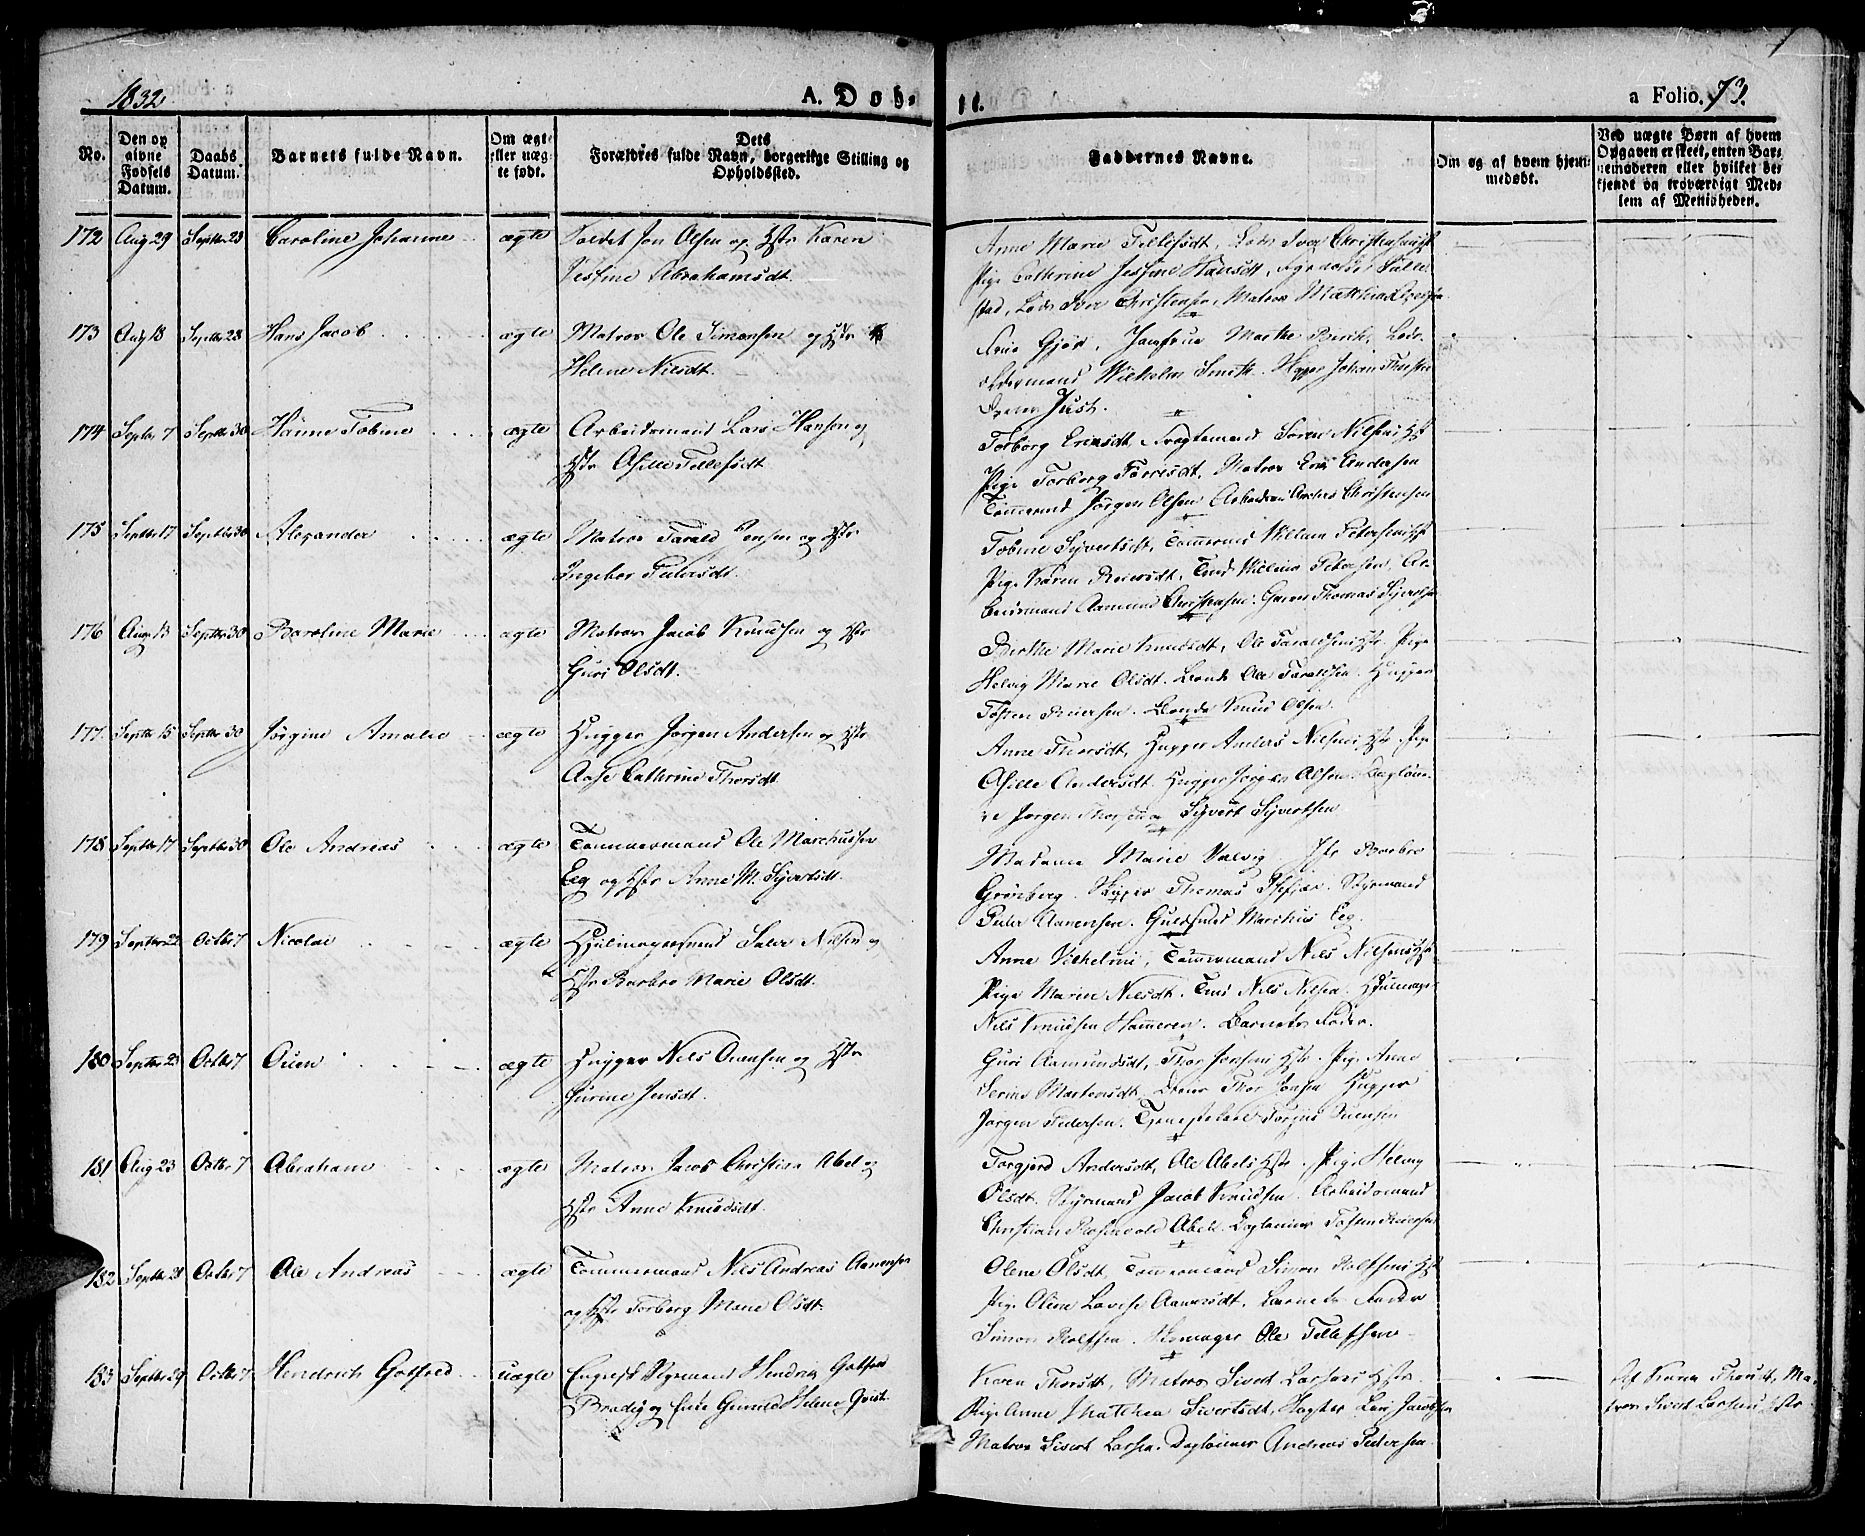 1832 A. Døb-
te. a Folio. 73.
No. Den op
givne
Fødsels
Datum. Daabs
Datum. Barnets fulde Navn. Om ægte
eller uæg-
te født. Dets
Forældres fulde Navn, borgerlige Stilling og
Opholdssted. Faddernes Navne. Om og af hvem hjem-
medøbt. Ved uægte Børn af hvem
Opgaven er skeet, enten Bar-
nemoderen eller hvilket be-
kjendt og troværdigt Med-
lem af Menigheden.
172 Aug 29 Septbr 23 Caroline Johanne ægte Soldat Jon Olsen og Hstr Karen
Jesfine Abrahamsdt.
Anne Marie Tellefsdt, Lods Iver Christensens Hst
Pige Cathrine Jesfine Hansdt,
Lods Iver Christensen, Matros
173 Aug 18 Septbr 23 Hans Jacob ægte Matros Ole Simonsen og Hstr
Helene Nilsdt.
Jomfrue Marthe Lods
oldermand Wilhelm Smith. Johan
Just.
174 Septbr 7 Septbr 30 Hanne Tobine ægte Arbeidsmand Lars Hansen og
Hstr Asille Tellefsdt
Torborg Ericsdt, Søren Nilsens Hst
Pige Torborg Matros Eric Andersen
Tømmermd Jørgen Olsen Anders Christensen
175 Septbr 17 Septbr 30 Alexander ægte Matros Tarald Jensen og Hstr
Ingebor Pedersdt.
Tobine Syvertsdt, Tømmermd Willum Petersens Hst
Pige Karen Reiersdt, Tmd Willum Petersen, Ar-
beidsmand Aamund Christensen. Thomas
176 Aug 13 Septbr 30 Caroline Marie ægte Matros Jacob Knudsen og Hstr
Guri Olsdt.
Berthe Marie Knudsdt, Ole Taraldsens Hstr. Pige
Helvig Marie Olsdt. Bonde Ole Taraldsen. Hugger
Tosten Reiersen. Bonde Knud Olsen.
177. Septbr 15 Septbr 30 Jørgine Amalie ægte Hugger Jørgen Andersen og Hstr
Aase Cathrine Thorsdt
Anne Thorsdt, Hugger Anders Nilsens Hstr. Pige
Asille Andersdt. Hugger Jørgen Olsen. Dagløne-
re Jørgen Syvert Syvertsen
178 Septbr 17 Septbr 30 Ole Andreas ægte Tømmermand Ole Marchussen
Eeg og Hstr Anne M. Syvertsdt.
Madame Marie Valvig Hstr Barbro
Grønberg. Skipper Thomas Styrmand
Peder Aanensen. Guldsmed Marchus Eeg.
179 Septbr 22 Octbr 7 Nicolai ægte Hjulmagersvend Salve Nilsen og
Hstr Barbro Marie Olsdt.
Anne Vilhelmine, Tømmermand Nils Nilsens Hst
Pige Maren Nilsdt. Tmd Nils Nilsen. Hjulmager
Nils Knudsen Hameren. Barnets Fader.
180 Septbr 23 Octbr 7 Ouen ægte Hugger Nils Ouensen og Hstr
Gurine Jensdt.
Guri Aamundsdt, Thor Jensens Hstr. Pige Anne
Serine Mortensdt. Thor Jensen Hugger
Jørgen Pedersen. Ouensen
181 Aug 23 Octbr 7 Abraham ægte Matros Jacob Christian Abel og
Hstr Anne Knudsdt.
Torgjerd Andersdt, Ole Abels Hstr. Pige Helvig
Olsdt. Styrmand Jacob Knudsen. Arbeidsmand
Christian Rosenvold Abel. Dagløner Tosten Reiersen
182 Septbr 21 Octbr 7 Ole Andreas ægte Tømmermand Nils Andreas Aanensen
og Hstr Torborg Marie Olsdt.
Olene Olsdt, Tømmermand Simon Rolfsens Hst
Pige Oline Lovise Aanensdt, Barnets Fader
Simon Rolfsen. Ole Tellefsen
183 Septbr 29 Octbr 7 Hendrich Gotfred uægte Hendrich Gotfred
Brodig og Gunild Helene Qvist
Karen Thorsdt, Matros Sivert Larsens Hstr.
Pige Anne Mathea Sivertsdt,
Matros Sivert Larsen. Dagløner Andreas Pedersen
Af Karen Thorsdt, Ma-
tros Sivert Larsens Hstr